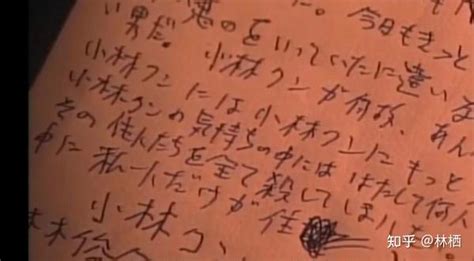 た。今日もきっと
をいっていたに違いな
い男だ。小林クンが何故、あん
小林クンには小林クンにもっと
小林クンの気持ちの中にははたして何人
その住人たちを全て殺してしまい
中に私一人だけが住
小林ク
知乎 @林栖